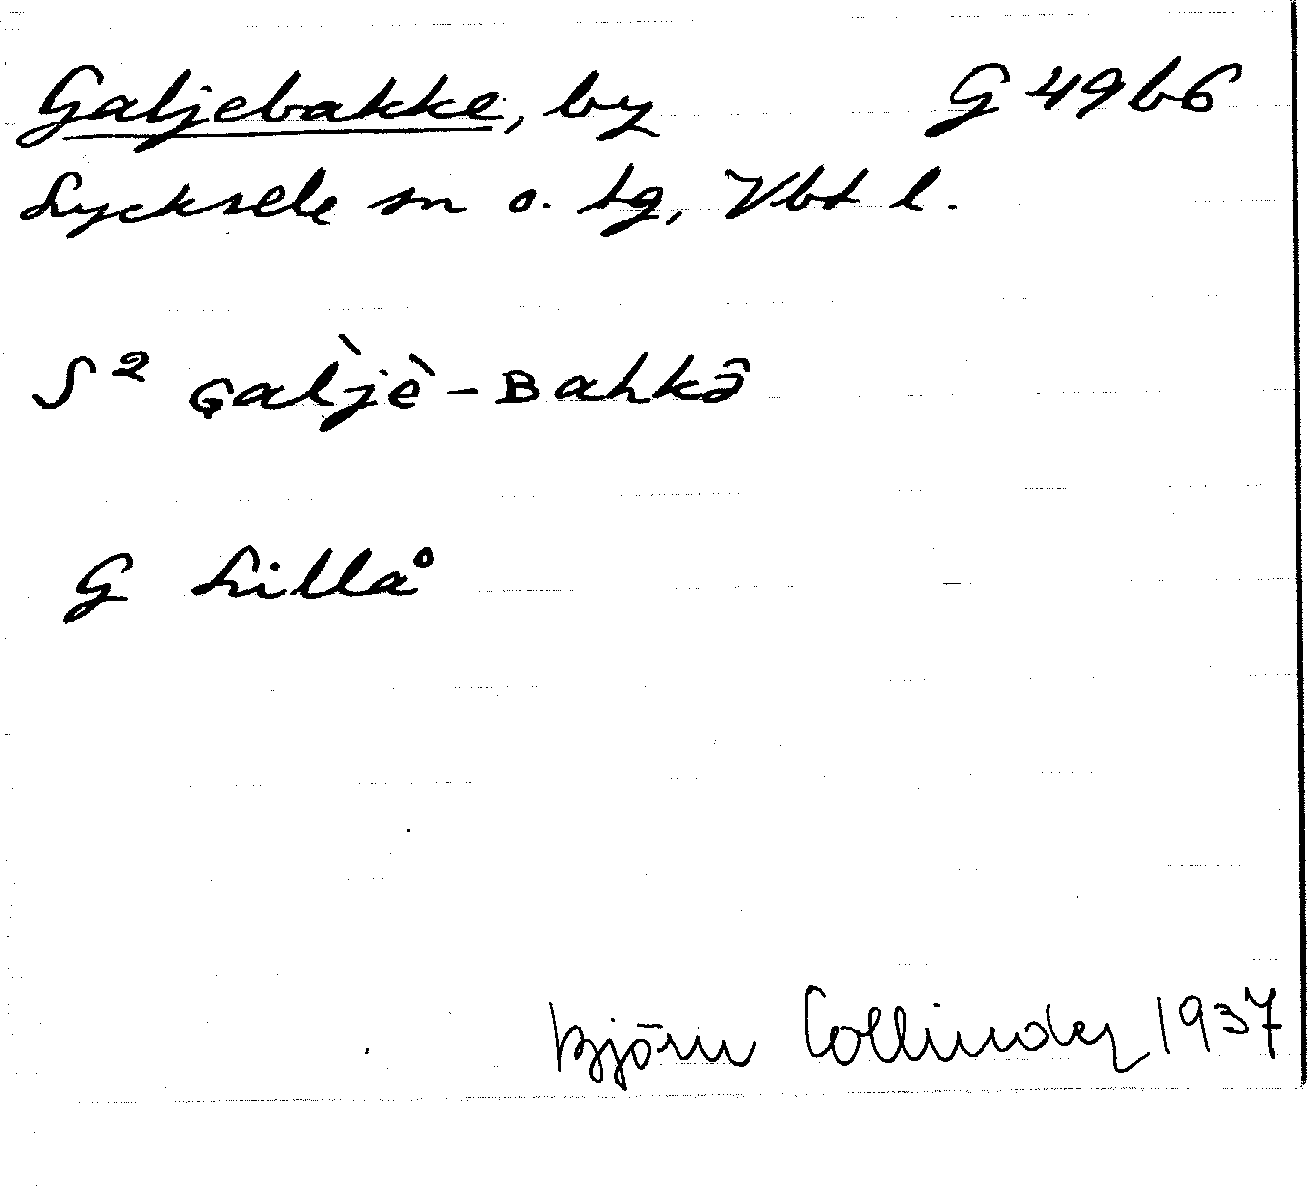 Galjebakke, by G 49 b 6
Lycksele sn o. tg, Vbt l.
S² Gal̀jè-Bahkâ
G Lillå
Björn Collinder 1937